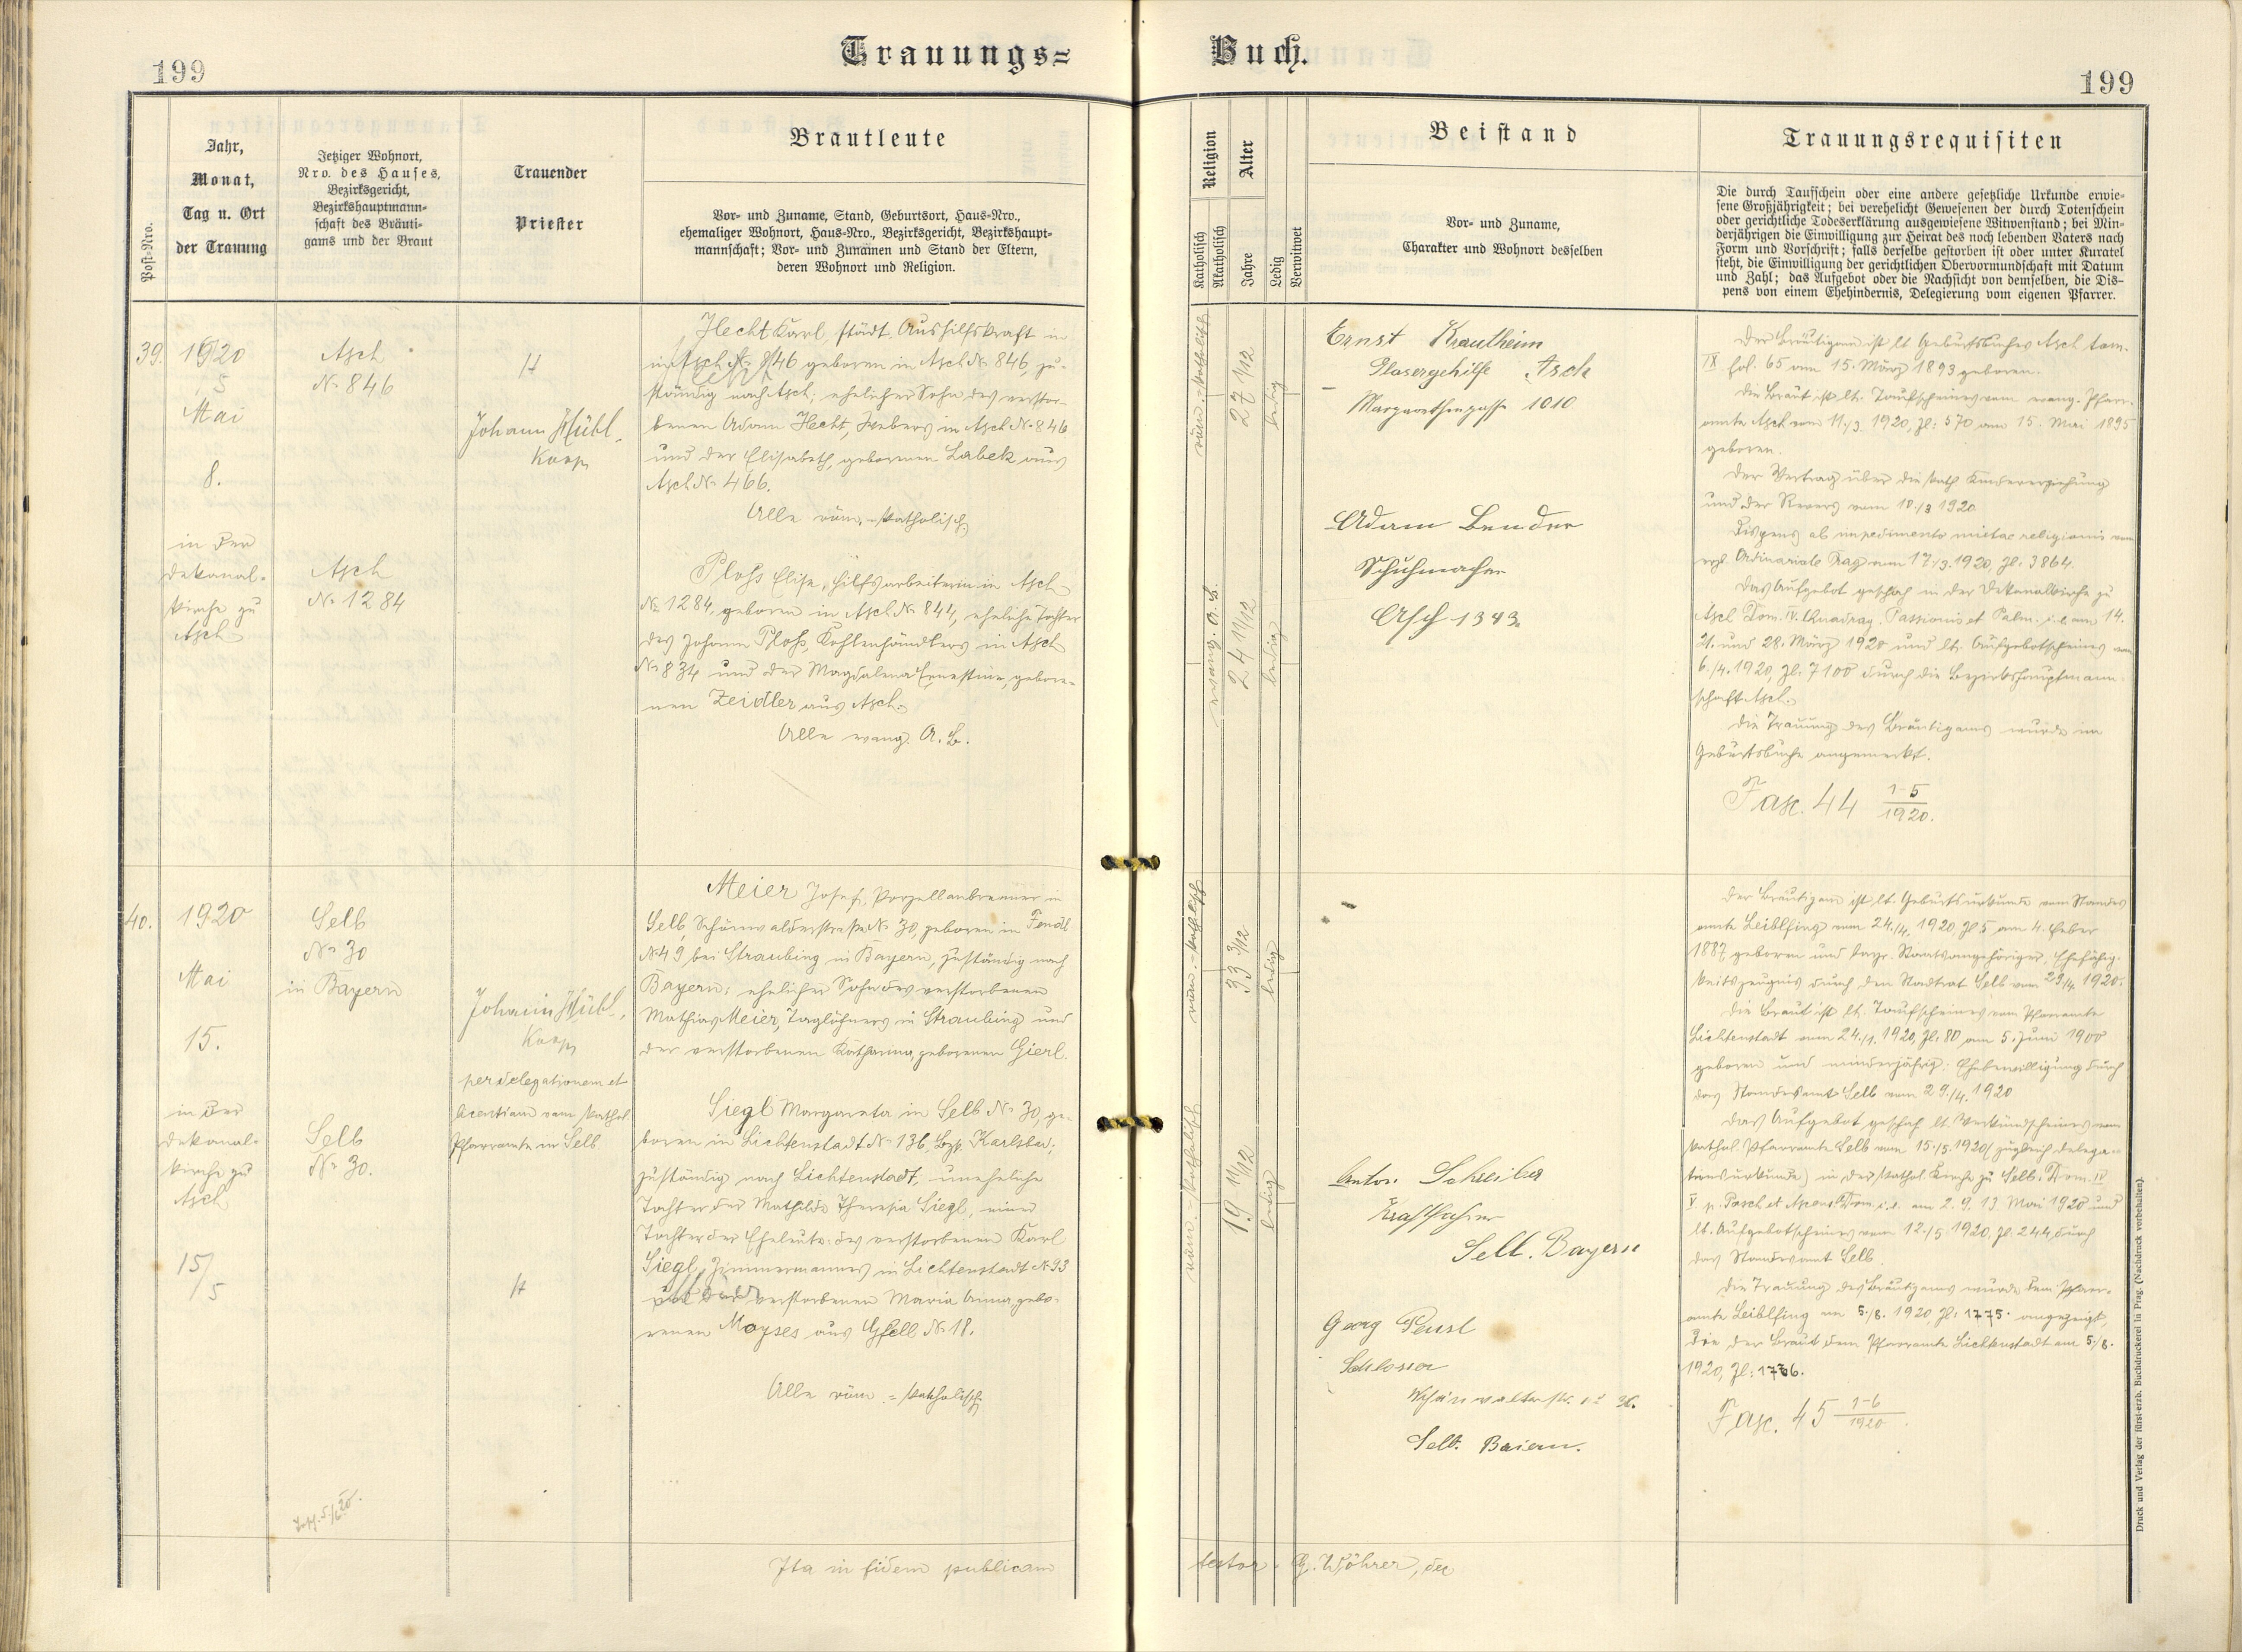 199
Trauungs=
Buch.
199
Post-Nro.
Jahr,
Monat,
Tag u. Ort
der Trauung
Jetziger Wohnort,
Nro. des Hauses,
Bezirksgericht,
Bezirkshauptmann-
schaft des Bräuti-
gams und der Braut
Trauender
Priester
Brautleute
Vor- und Zuname, Stand, Geburtsort, Haus-Nro.,
ehemaliger Wohnort, Haus-Nro., Bezirksgericht, Bezirkshaupt-
mannschaft; Vor- und Zunamen und Stand der Eltern,
deren Wohnort und Religion.
Religion
Katholisch
Akatholisch
Alter
Jahre
Ledig
Verwitwet
Beistand
Vor- und Zuname,
Charakter und Wohnort desselben
Trauungsrequisiten
Die durch Taufschein oder eine andere gesetzliche Urkunde erwie-
sene Großjährigkeit; bei verehelicht Gewesenen der durch Totenschein
oder gerichtliche Todeserklärung ausgewiesene Witwenstand; bei Min-
derjährigen die Einwilligung zur Heirat des noch lebenden Vaters nach
Form und Vorschrift; falls derselbe gestorben ist oder unter Kuratel
steht, die Einwilligung der gerichtlichen Obervormundschaft mit Datum
und Zahl; das Aufgebot oder die Nachsicht von demselben, die Dis-
pens von einem Ehehindernis, Delegierung vom eigenen Pfarrer.
39.
1920
5
Mai
8.
in der
Dekanal-
kirche zu
Asch
Asch
N: 846
Asch
N: 1284
Johann Hübl,
Koop
Hecht Karl, städt. Aushilfskraft in
Asch N: 846 geboren in Asch N: 846, zu-
ständig nach Asch; ehelicher Sohn des verstor-
benen Adam Hecht, Webers in Asch N: 846
und der Elisabeth, geborenen Labek aus
Asch N: 466.
Alle röm.-katholisch
Ploß Elise, Hilfsarbeiterin in Asch
N: 1284, geboren in Asch N: 844, eheliche Tochter
des Johann Ploß, Kohlenhändlers in Asch
N: 834 und der Magdalena Ernestine, gebore-
nen Zeidler aus Asch.
Alle evang. A. B.
röm.-katholisch
27 1/12
ledig
evang. A. B.
24 11/12
ledig
Ernst Krautheim
Glasergehilfe Asch
Margarethengasse 1010
Adam Bender
Schuhmacher
Asch 1343.
Der Bräutigam ist lt Geburtsbuches Asch tom.
IX fol. 65 am 15. März 1893 geboren.
Die Braut ist lt. Taufscheines vom evang. Pfarr-
amte Asch vom 11./3. 1920, Zl: 570 am 15. Mai 1895
geboren.
Der Vertrag über die kath. Kindererziehung
und der Revers vom 10./3 1920
Dispens ab impedimento mixtae religionis vom
Ordinariate Prag vom 17./3. 1920, Zl. 3864.
Das Aufgebot geschah in der Dekanalkirche zu
Asch Dom. IV. Quadrag. Passionis et Palm. i. e. am 14.
21. und 28. März 1920 und lt. Aufgebotscheines vom
6./4. 1920, Zl. 7100 durch die Bezirkshauptmann-
schaft Asch.
Die Trauung des Bräutigams wurde im
Geburtsbuche angemerkt.
Fasc. 44 1-5
1920.
40.
1920
Mai
15.
in der
Dekanal-
kirche zu
Asch
15/5
Selb
N: 30
in Bayern
Selb
N: 30.
Johann Hübl,
Koop
per delegationem et
licentiam vom kathol.
Pfarramte in Selb
Meier Josef, Porzellanbrenner in
Selb, Schönwalderstraße N: 30, geboren in
N: 49 bei Straubing in Bayern, zuständig nach
Bayern; ehelicher Sohn des verstorbenen
Mathias Meier, Taglöhners in Straubing und
der verstorbenen Katharina, geborenen Gierl.
Siegl Margareta in Selb N: 30, ge-
boren in Lichtenstadt N: 136, Bzg. Karlsbad;
zuständig nach Lichtenstadt, uneheliche
Tochter der Mathilde Theresia Siegl, einer
Tochter der Eheleute: des verstorbenen Karl
Siegl, Zimmermannes in Lichtenstadt N: 93
und der verstorbenen Maria Anna, gebo-
renen Moyses aus Gfell N: 18.
Alle röm.-katholisch
röm.-katholisch
33 3/12
ledig
röm.-katholisch
19 11/12
ledig
Anton Schreiber
Kraftfahrer
Selb. Bayern
Georg
Schlosser
Selb. Baiern.
Der Bräutigam ist lt. Geburtsurkunde vom Standes
amte Leiblfing vom 24./4. 1920, Zl. 5 am 4. Feber
1887 geboren und bayr. Staatsangehöriger, Ehefähig-
keitszeugnis durch den Stadtrat Selb vom 29./4. 1920.
Die Braut ist lt. Taufscheines vom Pfarramte
Lichtenstadt vom 24./1. 1920, Zl: 80 am 5. Juni 1900
geboren und minderjährig: Ehebewilligung durch
das Standesamt Selb vom 29./4. 1920
Das Aufgebot geschah lt. Verkündscheines vom
kathol. Pfarramte Selb vom 15./5. 1920 (zugleich Delega-
tionsurkunde) in der kathol. Kirche zu Selb: Dom. IV
V p. Pasch et i. e. am 2. 9. 13. Mai 1920 und
lt. Aufgebotscheines vom 12./5 1920, Zl. 244 durch
das Standesamt Selb.
Die Trauung des Bräutigams wurde dem Pfarr-
amte Leiblfing am 5./6. 1920 Zl: 1775. angezeigt,
die der Braut dem Pfarramte Lichtenstadt am 5./6.
1920, Zl: 1776.
Fasc. 45 1-6
1920
Ita in fidem publicam
testor G. Wöhrer, dec
Druck und Verlag der fürst-erzb. Buchdruckerei in Prag. (Nachdruck vorbehalten).